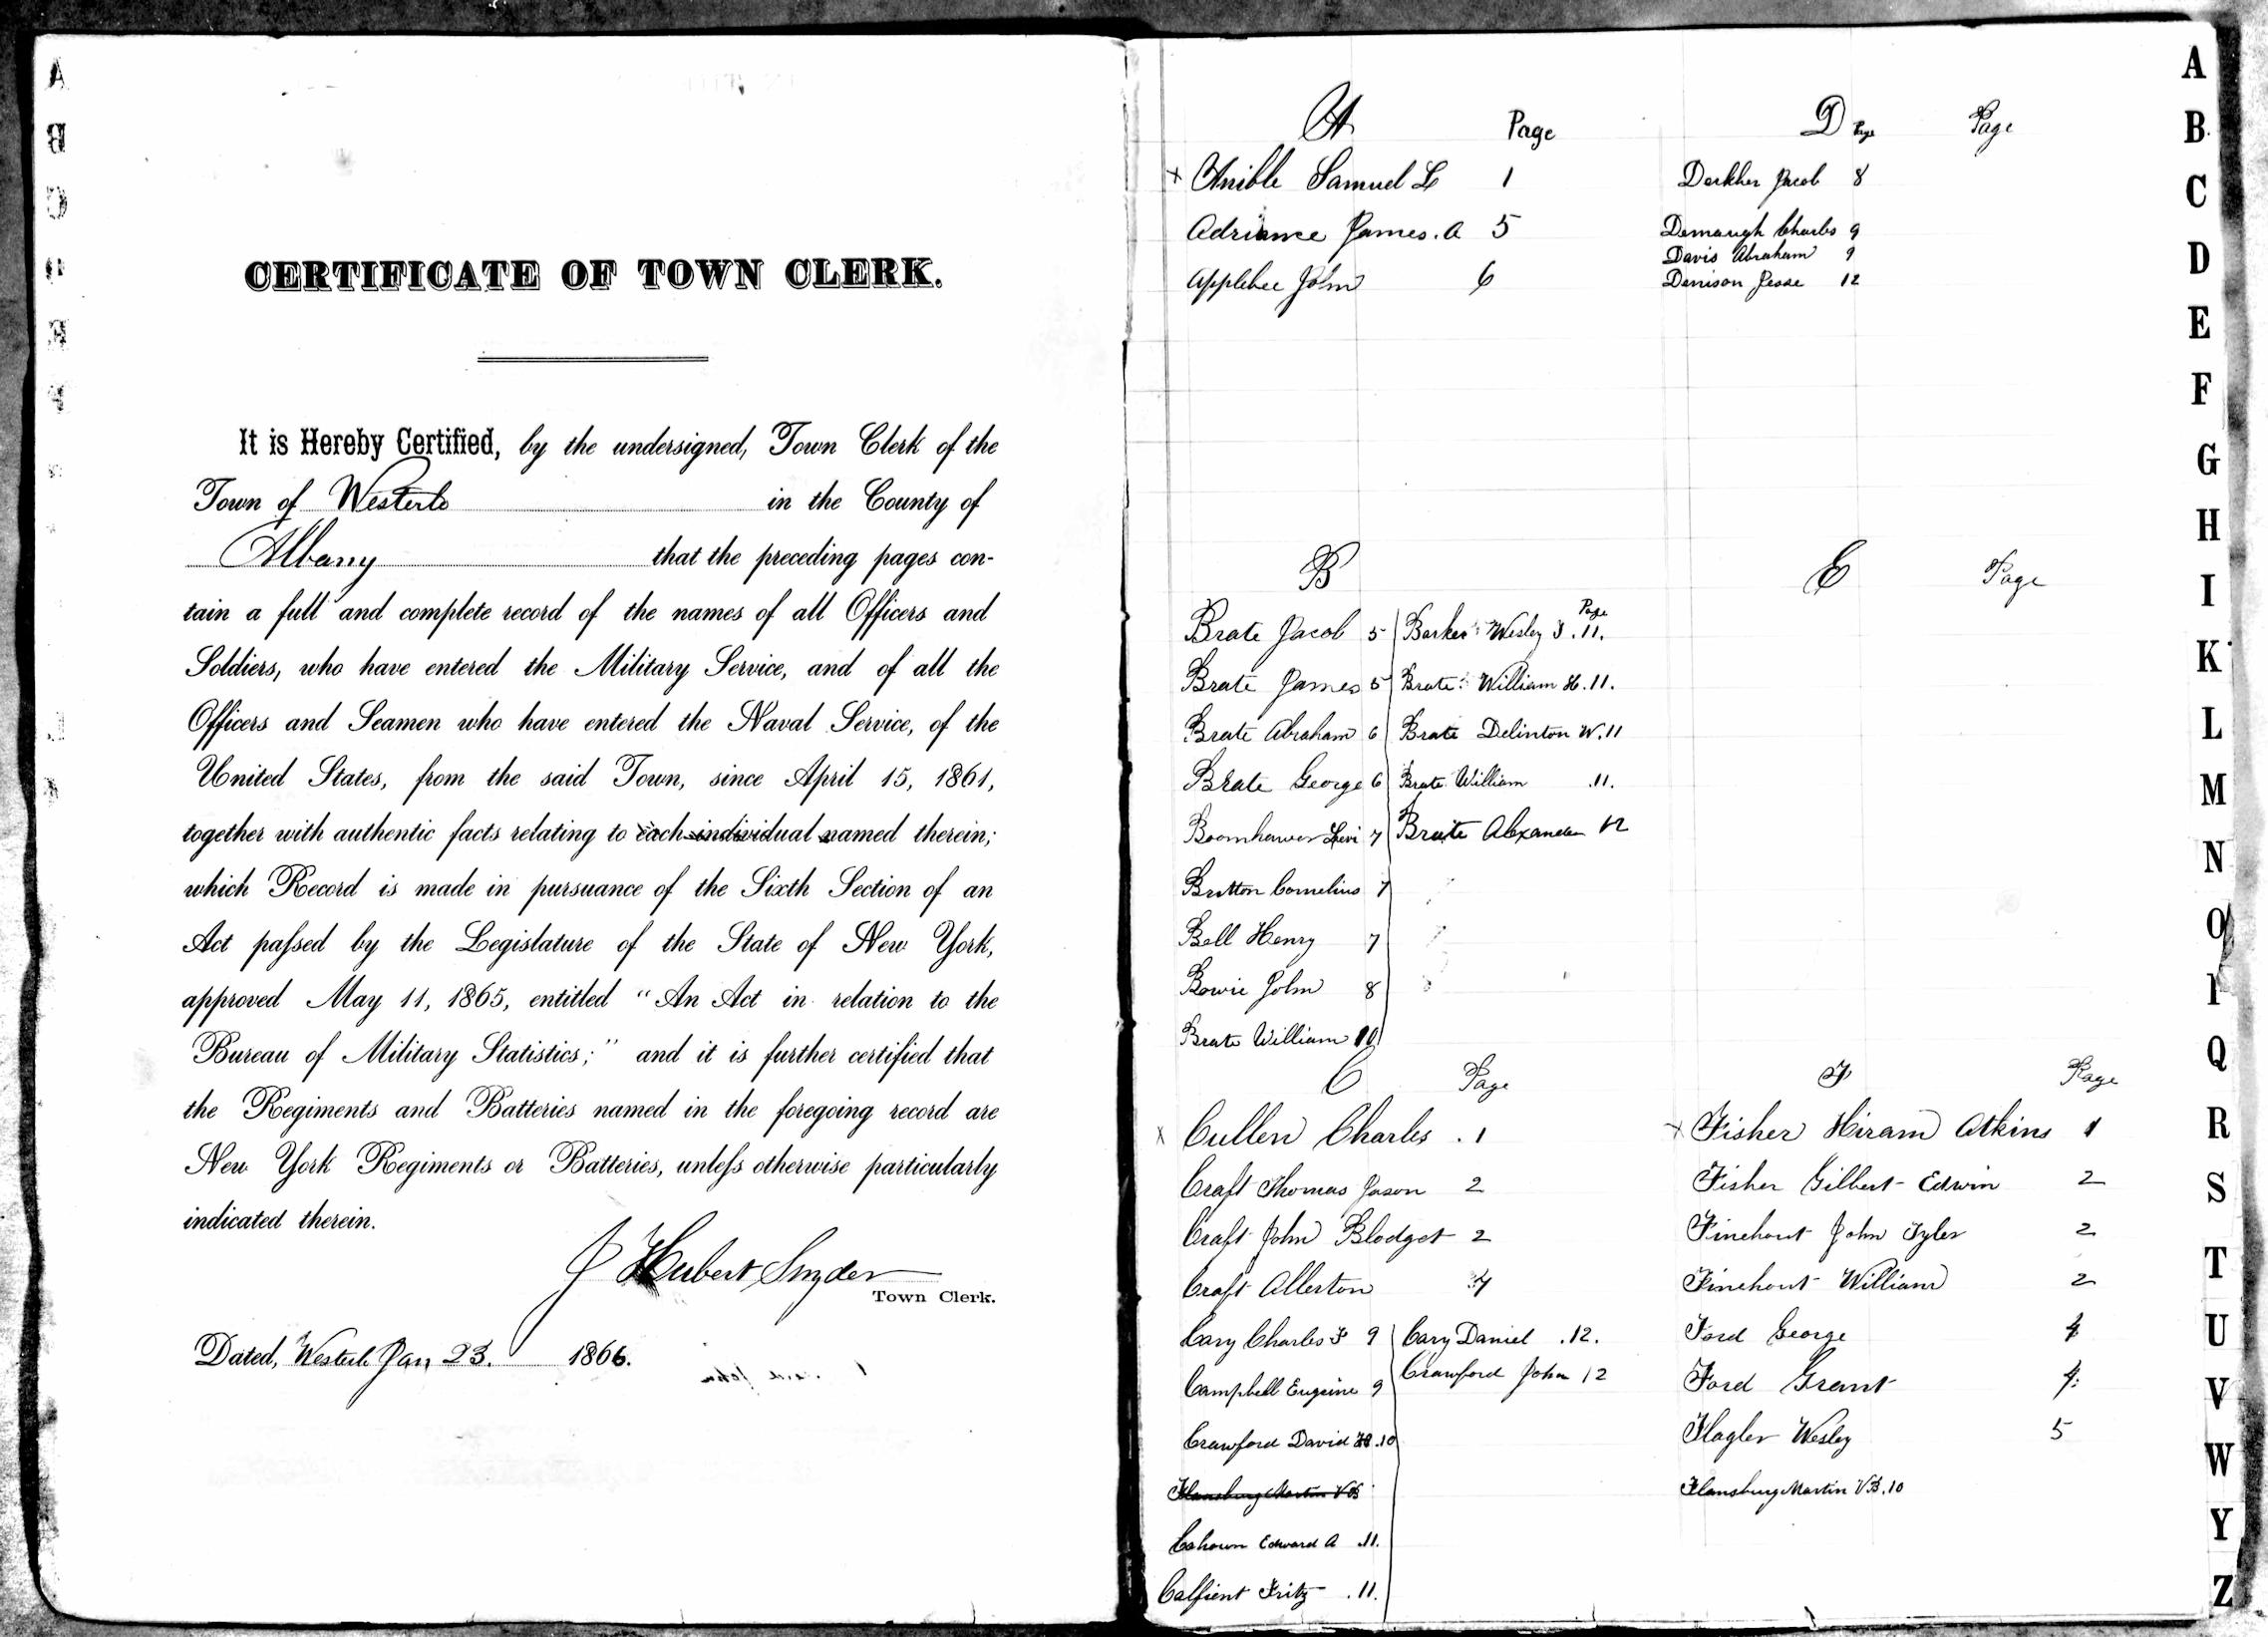 CERTIFICATE OF TOWN CLERK.
It is Hereby Certified, by the undersigned, Town Clerk of the
Town of Westerlo in the County of
Albany that the preceding pages con-
tain a full and complete record of the names of all Officers and
Soldiers, who have entered the Military Service, and of all the
Officers and Seamen who have entered the Naval Service, of the
United States, from the said Town, since April 15, 1861,
together with authentic facts relating to each individual named therein;
which Record is made in pursuance of the Sixth Section of an
Act passed by the Legislature of the State of New York,
approved May 11, 1865, entitled "An Act in relation to the
Bureau of Military Statistics;" and it is further certified that
the Regiments and Batteries named in the foregoing record are
New York Regiments or Batteries, unless otherwise particularly
indicated therein.
J Hubert Snyder
Town Clerk.
Dated, Westerlo Jan 23. 1866.
A Page
x Anible Samuel L 1
Adriance James. A 5
Applebee John 6
B
Page
Brate Jacob 5 Barker Wesley J. 11.
Brate James 5 Brate William H. 11.
Brate Abraham 6 Brate Delinton W. 11
Brate George 6 Brate William .11.
Boomhower Levi 7 Brate Alexander 12
Britton Cornelius 7
Bell Henry 7
Bowie John 8
Brate William 10
C Page
x Cullen Charles . 1
Craft Thomas Jason 2
Craft John Blodget 2
Craft Allerton 4
Cary Charles F 9 Cary Daniel .12.
Campbell Eugeine 9 Crawford John 12
Crawford David H .10
Flansburg Martin V B
Cahoun Edward A .11.
Calfient Fritz .11.
D Page Page
Jacob 8
Charles 9
Davis Abraham 9
Denison Jesse 12
E Page
F Page
x Fisher Hiram Atkins 1
Fisher Gilbert Edwin 2
Finehout John Tyler 2
Finehout William 2
Ford George 4
Ford Grant 4.
Flagler Wesley 5
Flansburg Martin V.B. 10
A
B
C
D
E
F
G
H
I
K
L
M
N
O
P
Q
R
S
T
U
V
W
Y
Z